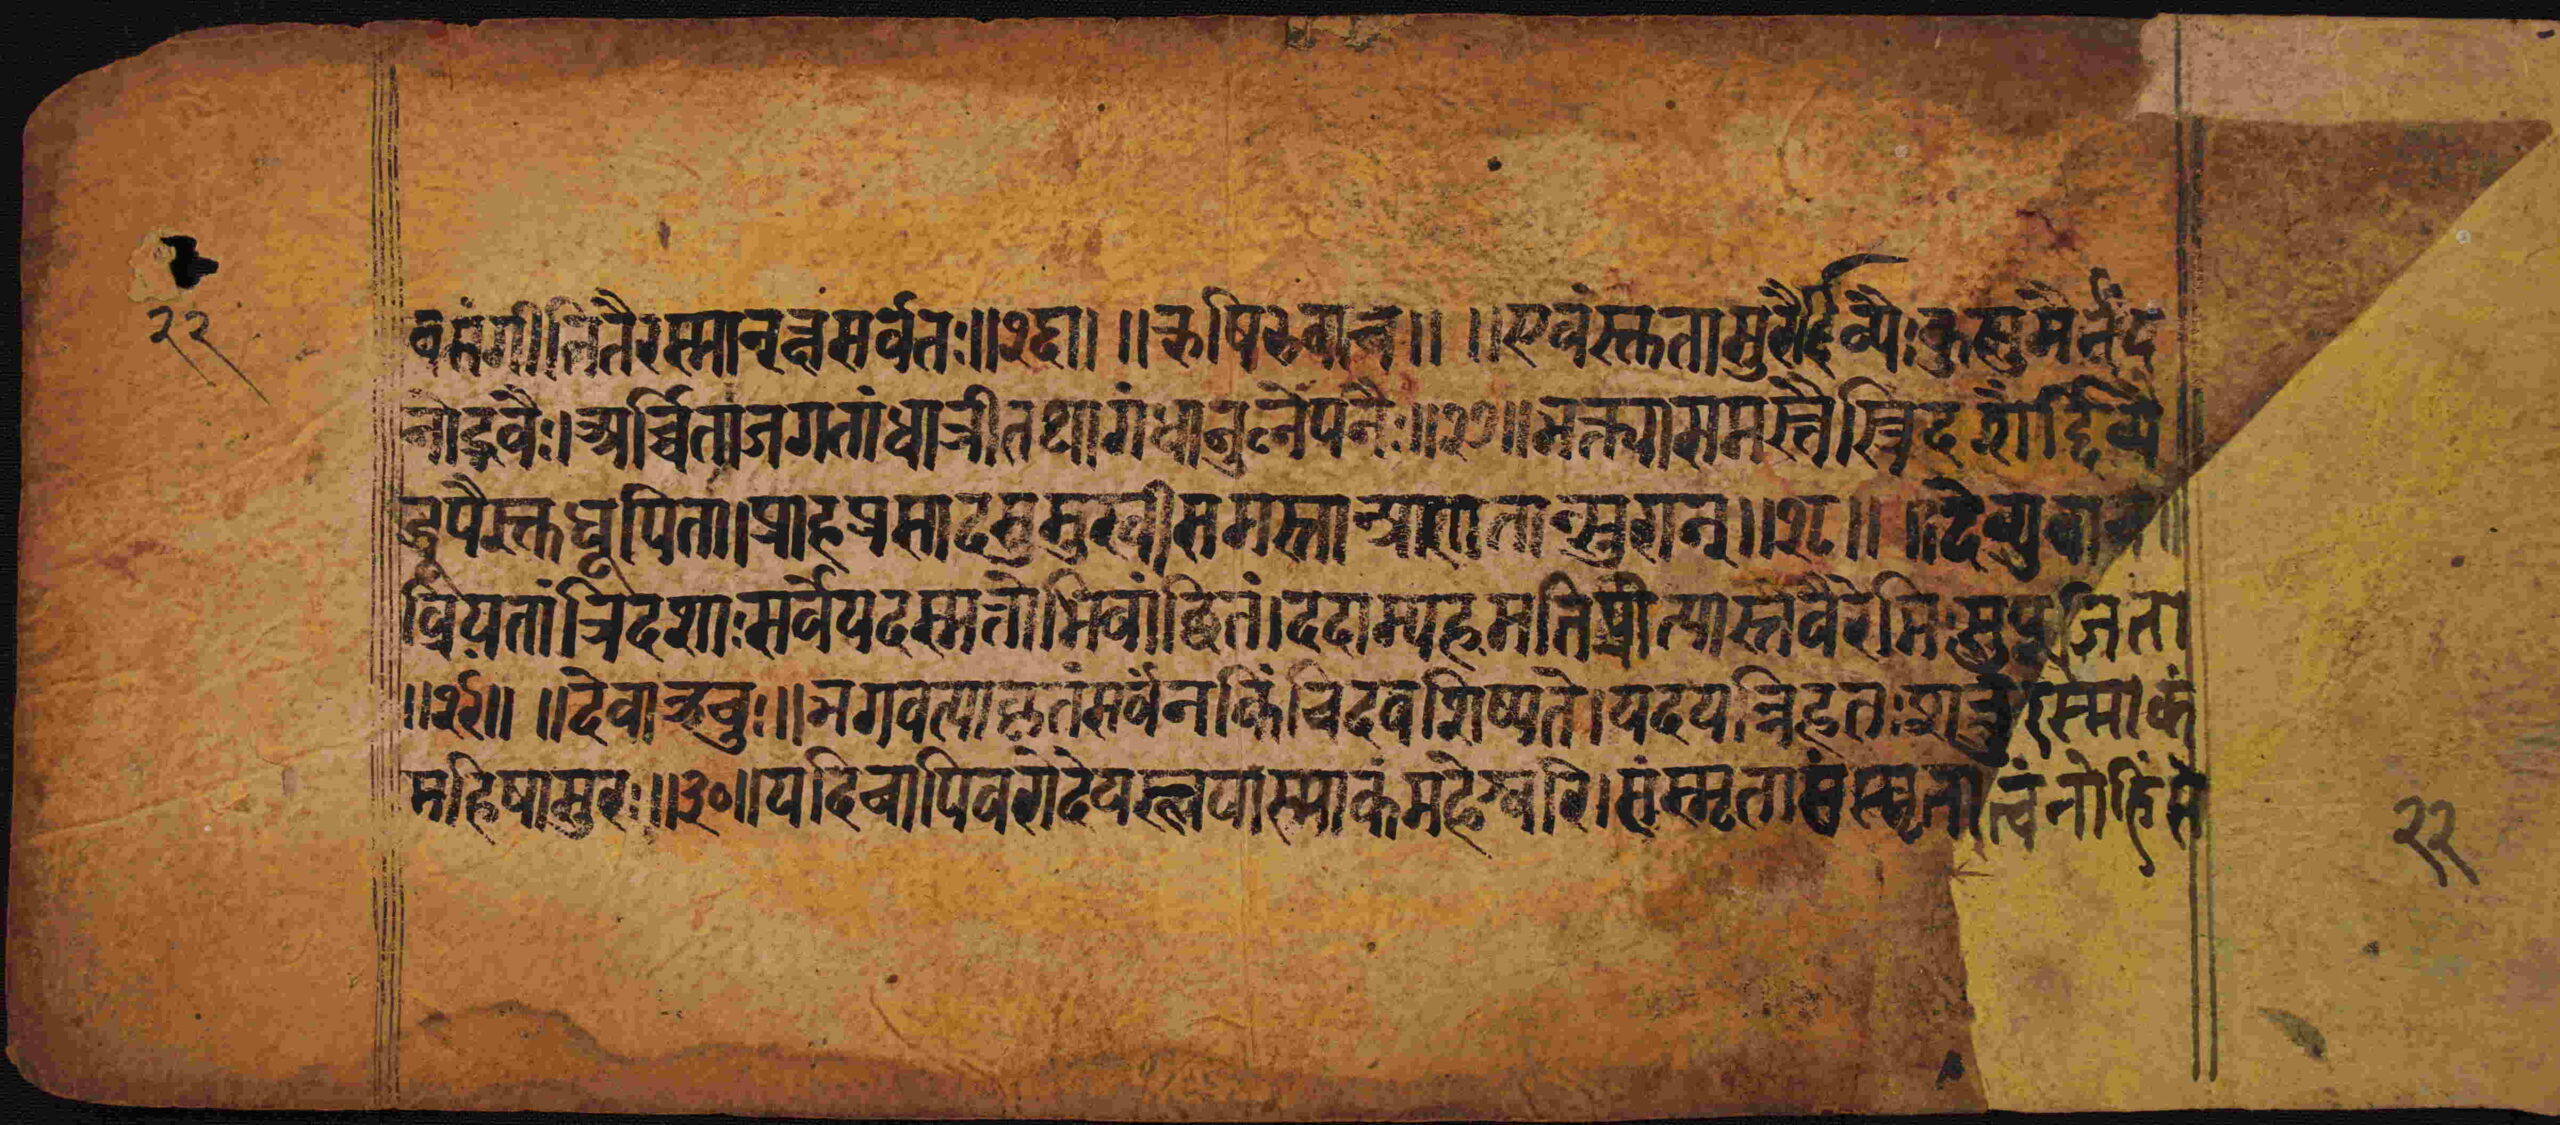 वसंगीनितैरस्मान् रक्षसर्वतः॥२६॥ ॥ऋषिरुवाच॥ ॥एवंस्तुतासुरैर्दिव्यैःकुसुमैर्नंद
नोद्भवैः।अर्च्चिताजगतांधात्रीतथागंधानुलेपनैः॥२७॥भक्त्यासमस्तैस्त्रिदशैर्द्दिव्यै
र्द्धूपैस्तुधूपिता।प्राहप्रसादसुमुखीसमस्तान्प्रणतान्सुरान्॥२८॥ ॥देव्युवाच॥
व्रियतांत्रिदशाःसर्वेयदस्मत्तोभिवांछितं।ददाम्यहमतिप्रीत्यास्तवैरेभिःसुपूजिता
॥२९॥ ॥देवाऊचुः॥भगवत्याकृतंसर्वंनकिंचिदवशिष्यते।यदयन्निहतःशत्रुरस्माकं
महिषासुरः॥३०॥यदिचापिवरोदेयस्त्वयास्माकंमहेश्वरि।संस्मृतासंस्मृतात्वंनोहिंसे
२२
२२